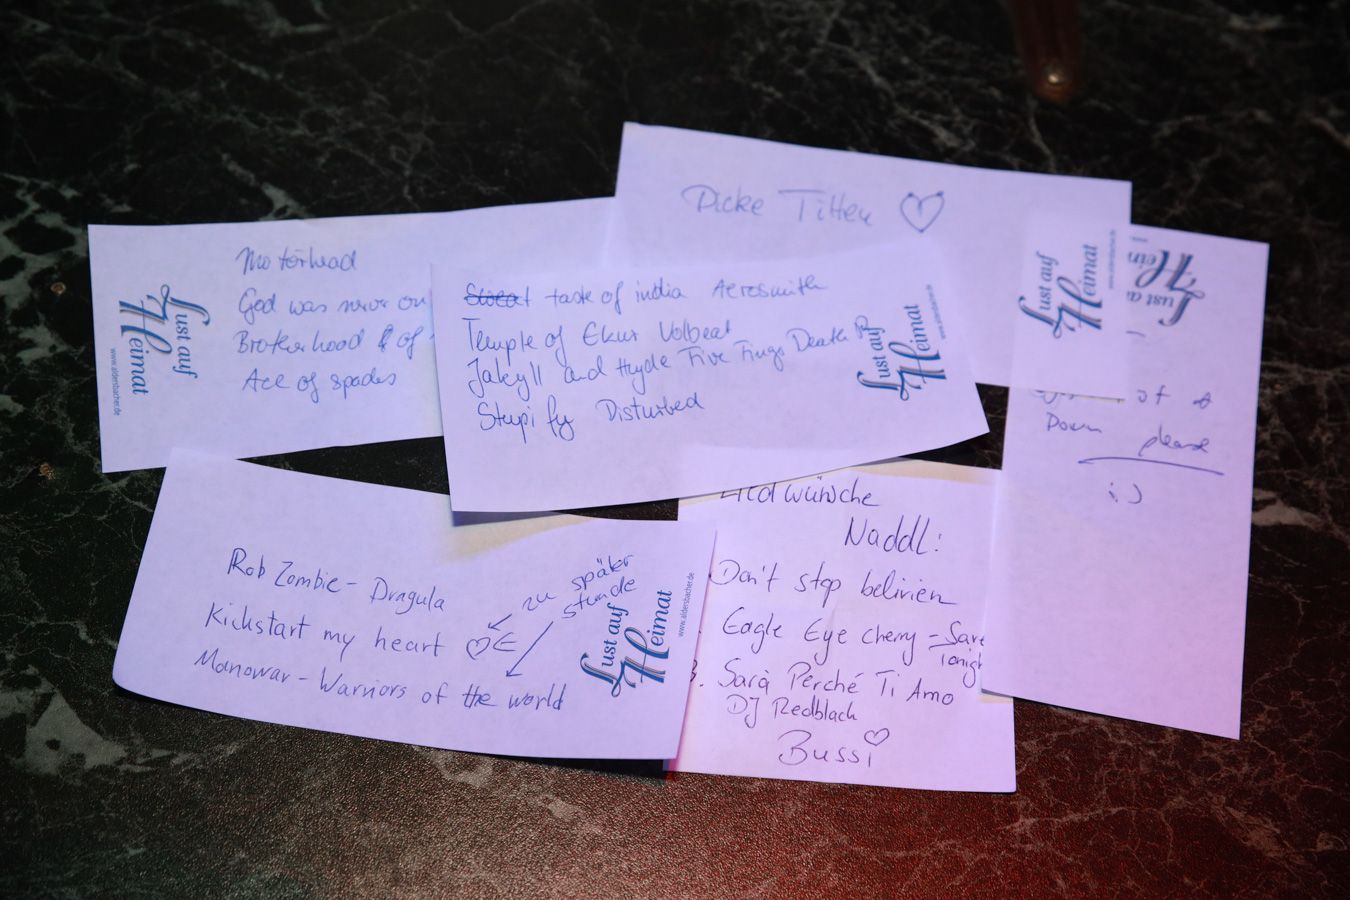 Motörhead
God was never on
Brotherhood of
Ace of spades
Lust auf
Heimat
www.aldersbacher.de
Dicke Titten ♡
Lust auf
Heimat
www.aldersbacher.de
taste of india Aerosmith
Temple of Ekur Volbeat
Jakyll and Hyde Five Finge Death P
Stupify Disturbed
Lust auf
Heimat
www.aldersbacher.de
Lust au
Hein
of a
Down please
:)
Rob Zombie - Dragula
Kickstart my heart ♡
Manowar - Warriors of the world
zu später
stunde
Lust auf
Heimat
www.aldersbacher.de
Liedwünsche
Naddl:
Don't stop belivien
Eagle Eye Cherry - Save
Tonigh
3. Sarà Perché Ti Amo
DJ Redblack
Bussi ♡